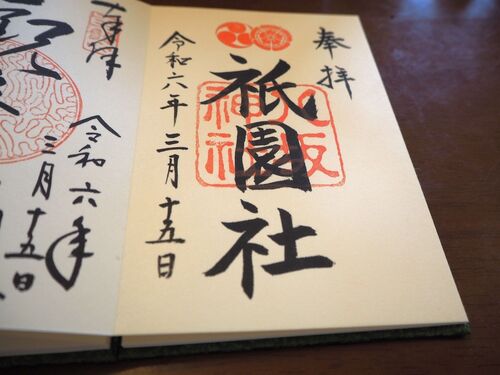 奉拝
祇園社
八坂神社
令和六年三月十五日
令和六年
三月十五日